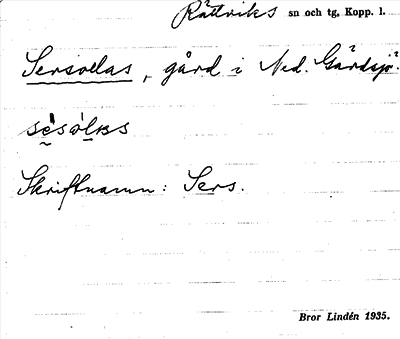 Rättviks sn och tg, Kopp. l.
Sersollas, gård i Ned. Gärdsjö.
Skriftnamn: Sers.
Bror Lindén 1935.